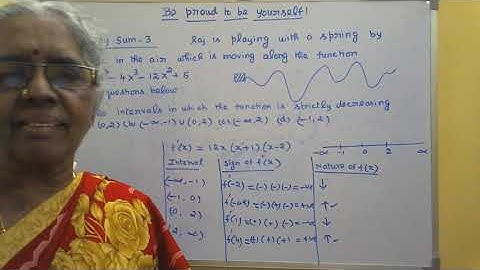 Be proud to be yourself!
Sum-3 Raj is playing with a spring by
in the air which is moving along the function
- 4x³ - 12x² + 5
below
intervals in which the function is strictly decreasing
(0,2) (b) (-∞,-1) ∪ (0,2) (c) (-∞,2) (d) (-1,2)
f'(x) = 12x (x+1) (x-2)
-∞ -1 0 2 ∞
Interval Sign of f'(x) Nature of f(x)
(-∞,-1) f'(-2) = (-) (-) (-) = -ve ↓
(-1, 0) = (-) (+) (-) = +ve ↑
(0, 2) f'(1) = (+) (+) (-) = -ve ↓
(2, ∞) (+) (+) (+) = +ve ↑